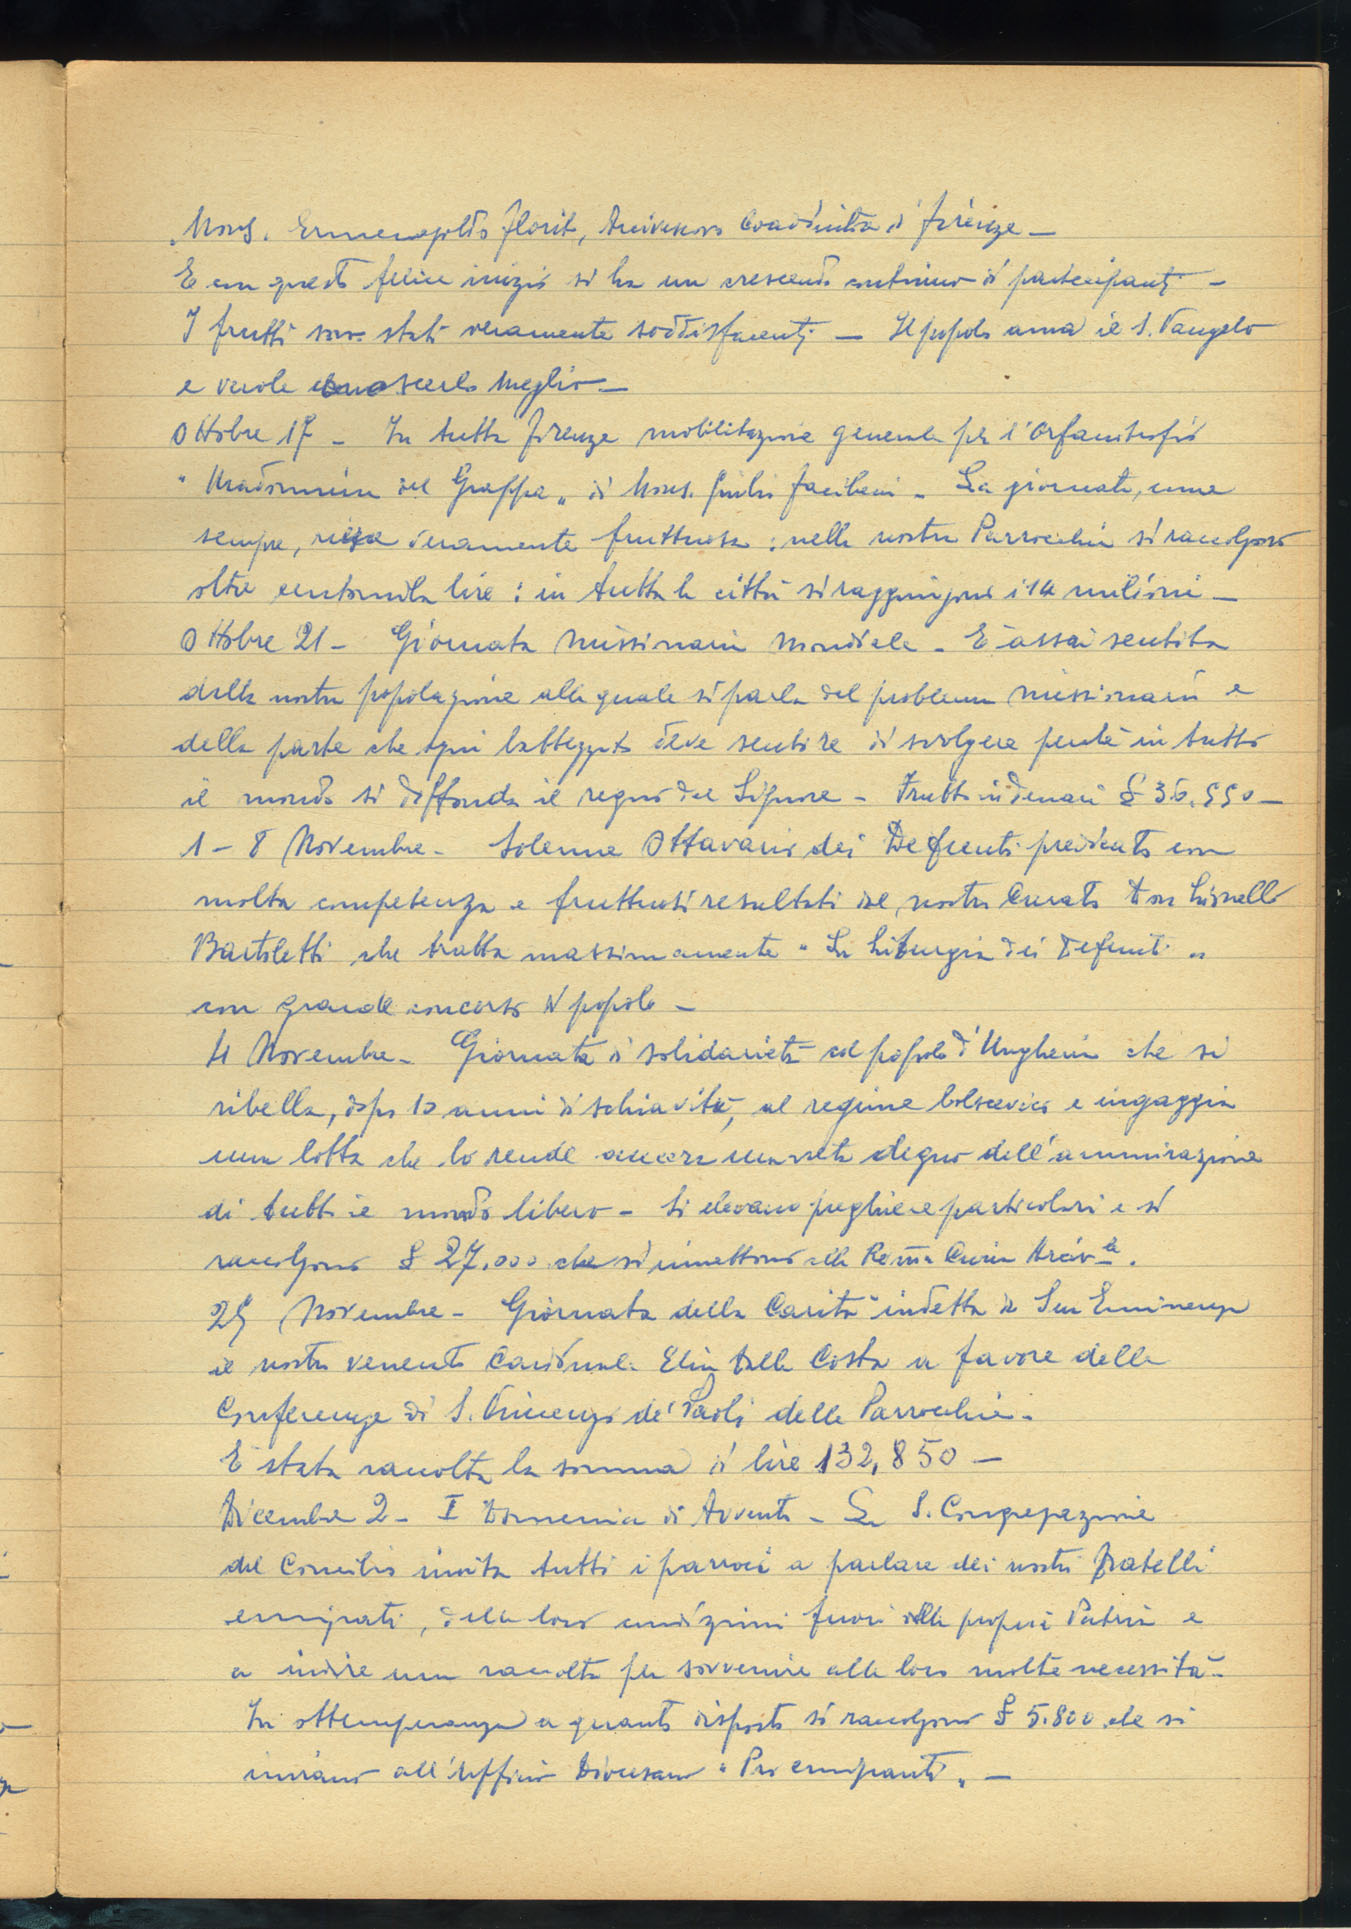 Mons. Ermenegildo Florit, Arcivescovo Coadiutore di Firenze –
E con questo felice inizio si ha un crescendo continuo di partecipanti –
I frutti sono stati veramente soddisfacenti – Il popolo ama il S. Vangelo
e vuole conoscerlo meglio –
Ottobre 17 – In tutta Firenze mobilitazione generale per l'Orfanotrofio
"Madonnina del Grappa" di Mons. Giulio Facibeni – La giornata, come
sempre, riesce veramente fruttuosa: nella nostra Parrocchia si raccolgono
oltre centomila lire: in tutta la città si raggiungono i 14 milioni –
Ottobre 21 – Giornata Missionaria Mondiale – È assai sentita
dalla nostra popolazione alla quale si parla del problema missionario e
della parte che ogni battezzato deve sentire di svolgere perché in tutto
il mondo si diffonda il regno del Signore – Frutto in denari £ 36.550 –
1 – 8 Novembre – Solenne Ottavario dei Defunti predicato con
molta competenza e fruttuosi resultati dal nostro Curato Don Lionello
Bartoletti che tratta massimamente "La Liturgia dei Defunti"
con grande concorso di popolo –
4 Novembre – Giornata di solidarietà col popolo d'Ungheria che si
ribella, dopo 10 anni di schiavitù, al regime bolscevico e ingaggia
una lotta che lo rende ancora una volta degno dell'ammirazione
di tutto il mondo libero – Si elevano preghiere particolari e si
raccolgono £ 27.000 che si rimettono alla Rev.ma Curia Arciv.le.
25 Novembre – Giornata della Carità indetta da Sua Eminenza
il nostro venerato Cardinale Elia Dalla Costa a favore delle
Conferenze di S. Vincenzo de' Paoli delle Parrocchie –
È stata raccolta la somma di lire 132,850 –
Dicembre 2 – I Domenica di Avvento – La S. Congregazione
del Concilio invita tutti i parroci a parlare dei nostri fratelli
emigrati, della loro condizioni fuori della propria Patria e
a indire una raccolta per sovvenire alle loro molte necessità –
In ottemperanza a quanto disposto si raccolgono £ 5.800 che si
inviano all'Ufficio Diocesano "Pro emigranti" –